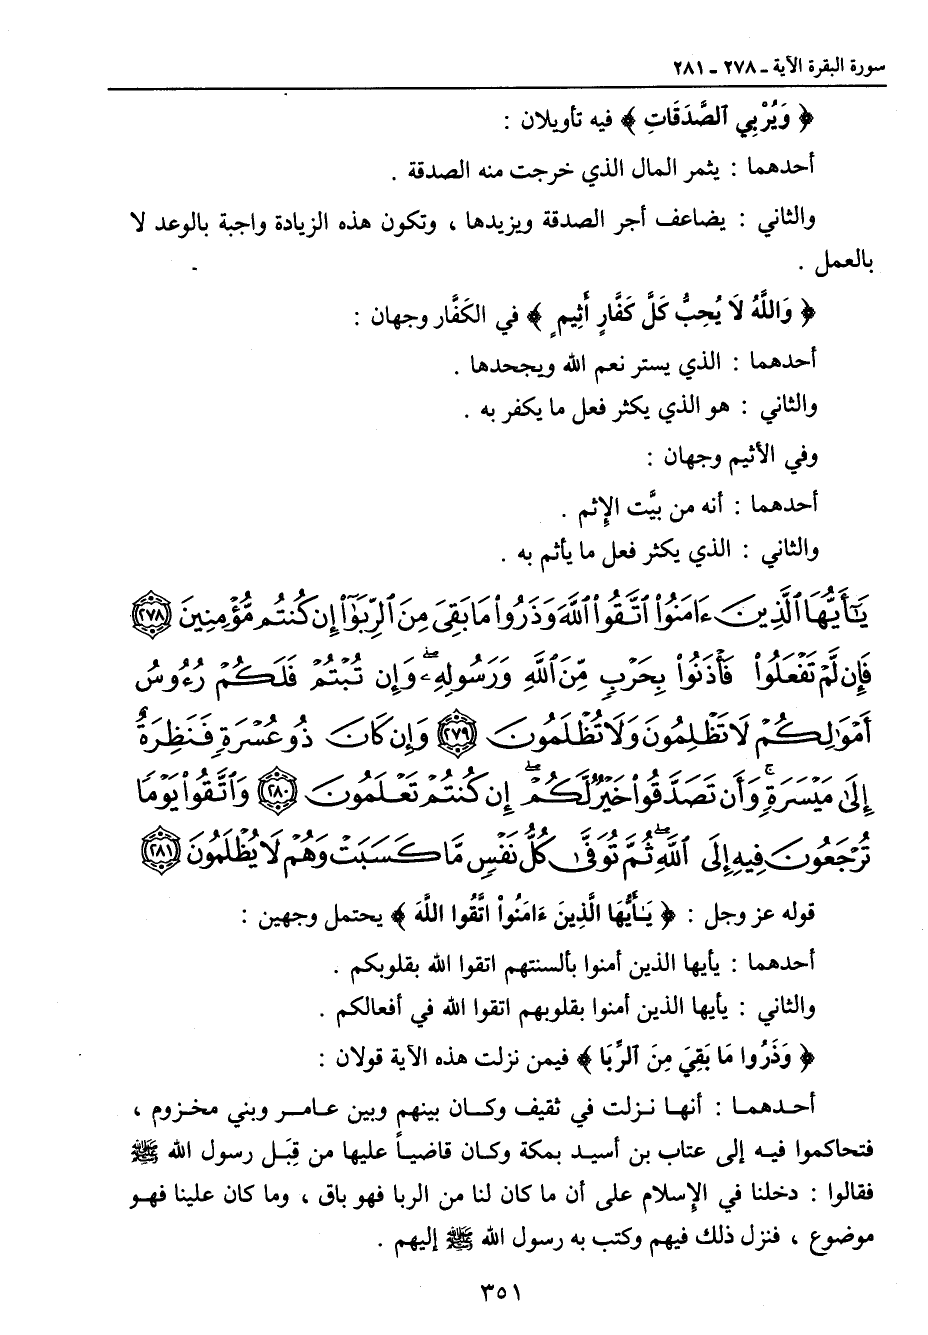 سورة البقرة الآية ـ ٢٧٨ ـ ٢٨١
﴿ وَيُرْبِي ٱلصَّدَقَاتِ ﴾ فيه تأويلان :
أحدهما : يثمر المال الذي خرجت منه الصدقة .
والثاني : يضاعف أجر الصدقة ويزيدها ، وتكون هذه الزيادة واجبة بالوعد لا
بالعمل .
﴿ وَاللَّهُ لَا يُحِبُّ كَلَّ كَفَّارٍ أَثِيمٍ ﴾ في الكَفَّار وجهان :
أحدهما : الذي يستر نعم الله ويجحدها .
والثاني : هو الذي يكثر فعل ما يكفر به .
وفي الأثيم وجهان :
أحدهما : أنه من بيَّت الإِثم .
والثاني : الذي يكثر فعل ما يأثم به .
يَـٰٓأَيُّهَا ٱلَّذِينَ ءَامَنُوا۟ ٱتَّقُوا۟ ٱللَّهَ وَذَرُوا۟ مَا بَقِىَ مِنَ ٱلرِّبَوٰٓا۟ إِن كُنتُم مُّؤْمِنِينَ ﴿٢٧٨﴾
فَإِن لَّمْ تَفْعَلُوا۟ فَأْذَنُوا۟ بِحَرْبٍ مِّنَ ٱللَّهِ وَرَسُولِهِۦ ۖ وَإِن تُبْتُمْ فَلَكُمْ رُءُوسُ
أَمْوَٰلِكُمْ لَا تَظْلِمُونَ وَلَا تُظْلَمُونَ ﴿٢٧٩﴾ وَإِن كَانَ ذُو عُسْرَةٍ فَنَظِرَةٌ
إِلَىٰ مَيْسَرَةٍ ۚ وَأَن تَصَدَّقُوا۟ خَيْرٌ لَّكُمْ ۖ إِن كُنتُمْ تَعْلَمُونَ ﴿٢٨٠﴾ وَٱتَّقُوا۟ يَوْمًا
تُرْجَعُونَ فِيهِ إِلَى ٱللَّهِ ۖ ثُمَّ تُوَفَّىٰ كُلُّ نَفْسٍ مَّا كَسَبَتْ وَهُمْ لَا يُظْلَمُونَ ﴿٢٨١﴾
قوله عز وجل : ﴿ يَـٰأَيُّهَا الَّذِينَ ءَامَنُوا۟ اتَّقُوا اللَّهَ ﴾ يحتمل وجهين :
أحدهما : يأيها الذين أمنوا بألسنتهم اتقوا الله بقلوبكم .
والثاني : يأيها الذين أمنوا بقلوبهم اتقوا الله في أفعالكم .
﴿ وَذَرُوا مَا بَقِيَ مِنَ ٱلرِّبَا ﴾ فيمن نزلت هذه الآية قولان :
أحدهما : أنها نزلت في ثقيف وكان بينهم وبين عامر وبني مخزوم ،
فتحاكموا فيه إلى عتاب بن أسيد بمكة وكان قاضياً عليها من قِبَل رسول الله ﷺ
فقالوا : دخلنا في الإِسلام على أن ما كان لنا من الربا فهو باق ، وما كان علينا فهو
موضوع ، فنزل ذلك فيهم وكتب به رسول الله ﷺ إليهم .
٣٥١